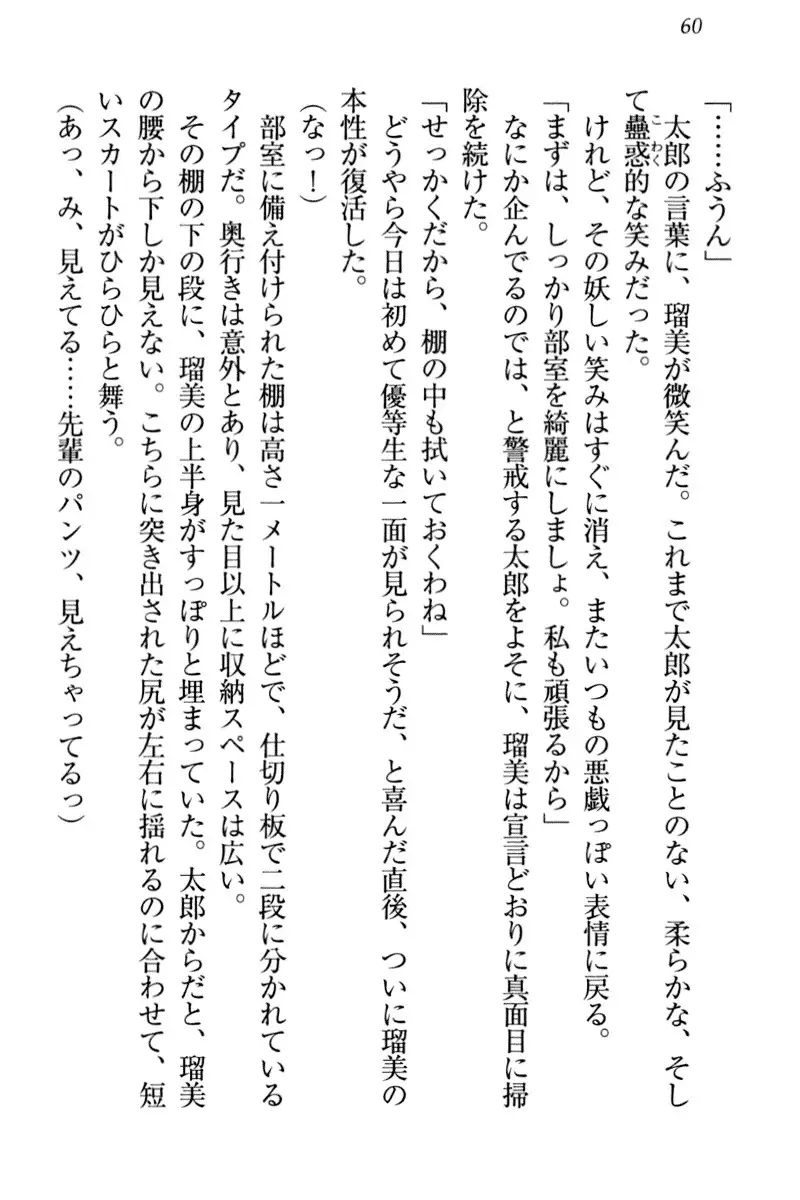 60
「……ふうん」
太郎の言葉に、瑠美が微笑んだ。これまで太郎が見たことのない、柔らかな、そし
て蠱惑的な笑みだった。
けれど、その妖しい笑みはすぐに消え、またいつもの悪戯っぽい表情に戻る。
「まずは、しっかり部室を綺麗にしましょ。私も頑張るから」
なにか企んでるのでは、と警戒する太郎をよそに、瑠美は宣言どおりに真面目に掃
除を続けた。
「せっかくだから、棚の中も拭いておくわね」
どうやら今日は初めて優等生な一面が見られそうだ、と喜んだ直後、ついに瑠美の
本性が復活した。
(なっ！)
部室に備え付けられた棚は高さ一メートルほどで、仕切り板で二段に分かれている
タイプだ。奥行きは意外とあり、見た目以上に収納スペースは広い。
その棚の下の段に、瑠美の上半身がすっぽりと埋まっていた。太郎からだと、瑠美
の腰から下しか見えない。こちらに突き出された尻が左右に揺れるのに合わせて、短
いスカートがひらひらと舞う。
(あっ、み、見えてる……先輩のパンツ、見えちゃってるっ)